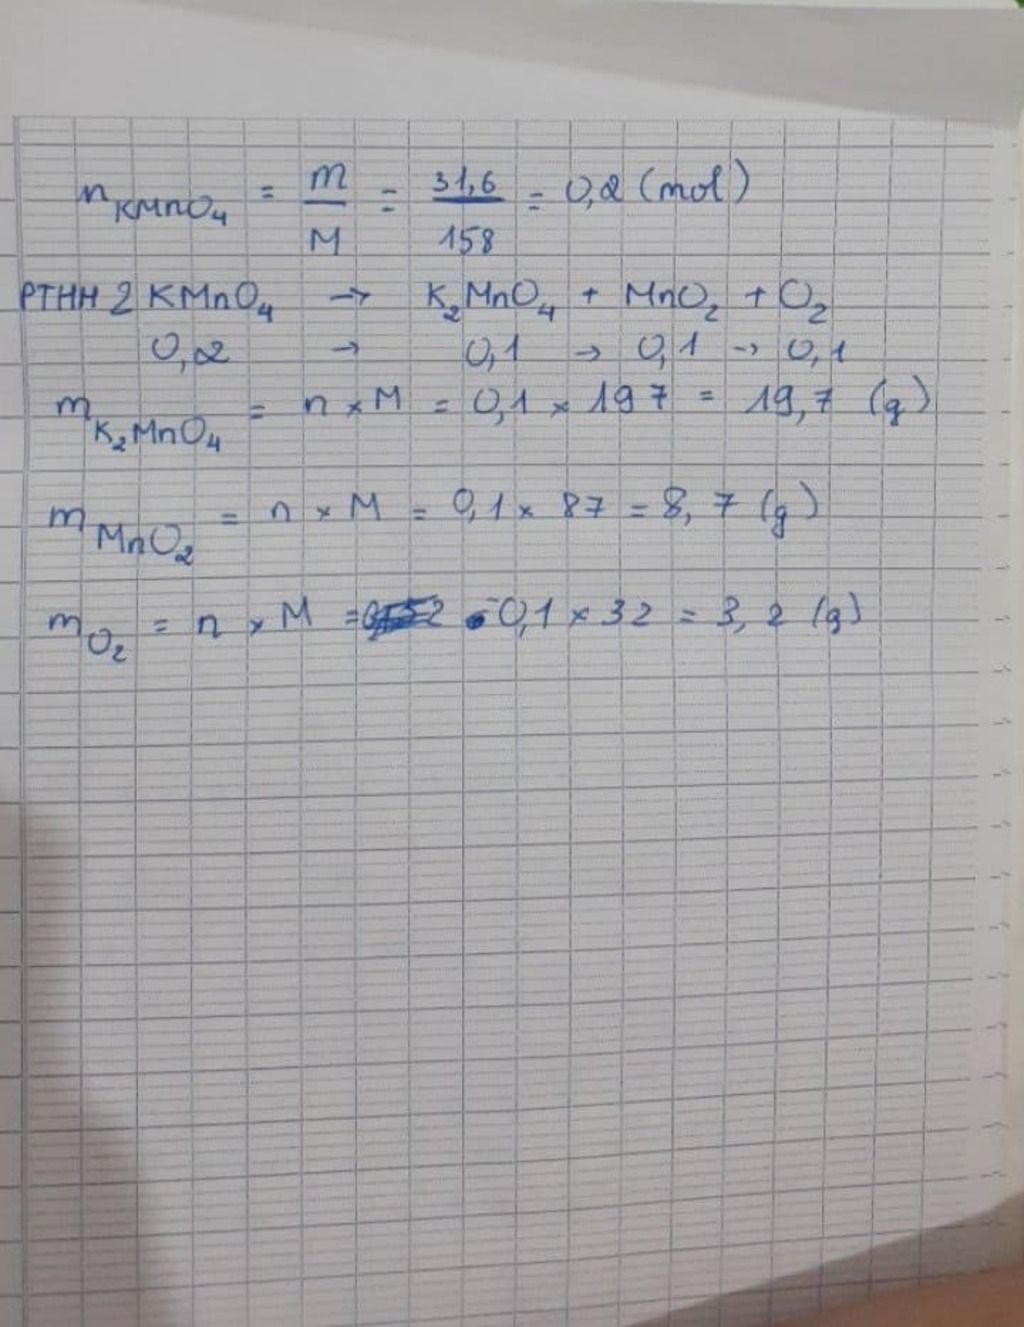 nKMnO4 = m/M = 31,6/158 = 0,2 (mol)
PTHH 2 KMnO4 → K2MnO4 + MnO2 + O2
0,2 → 0,1 → 0,1 → 0,1
mK2MnO4 = n × M = 0,1 × 197 = 19,7 (g)
mMnO2 = n × M = 0,1 × 87 = 8,7 (g)
mO2 = n × M = 0,1 × 32 = 3,2 (g)